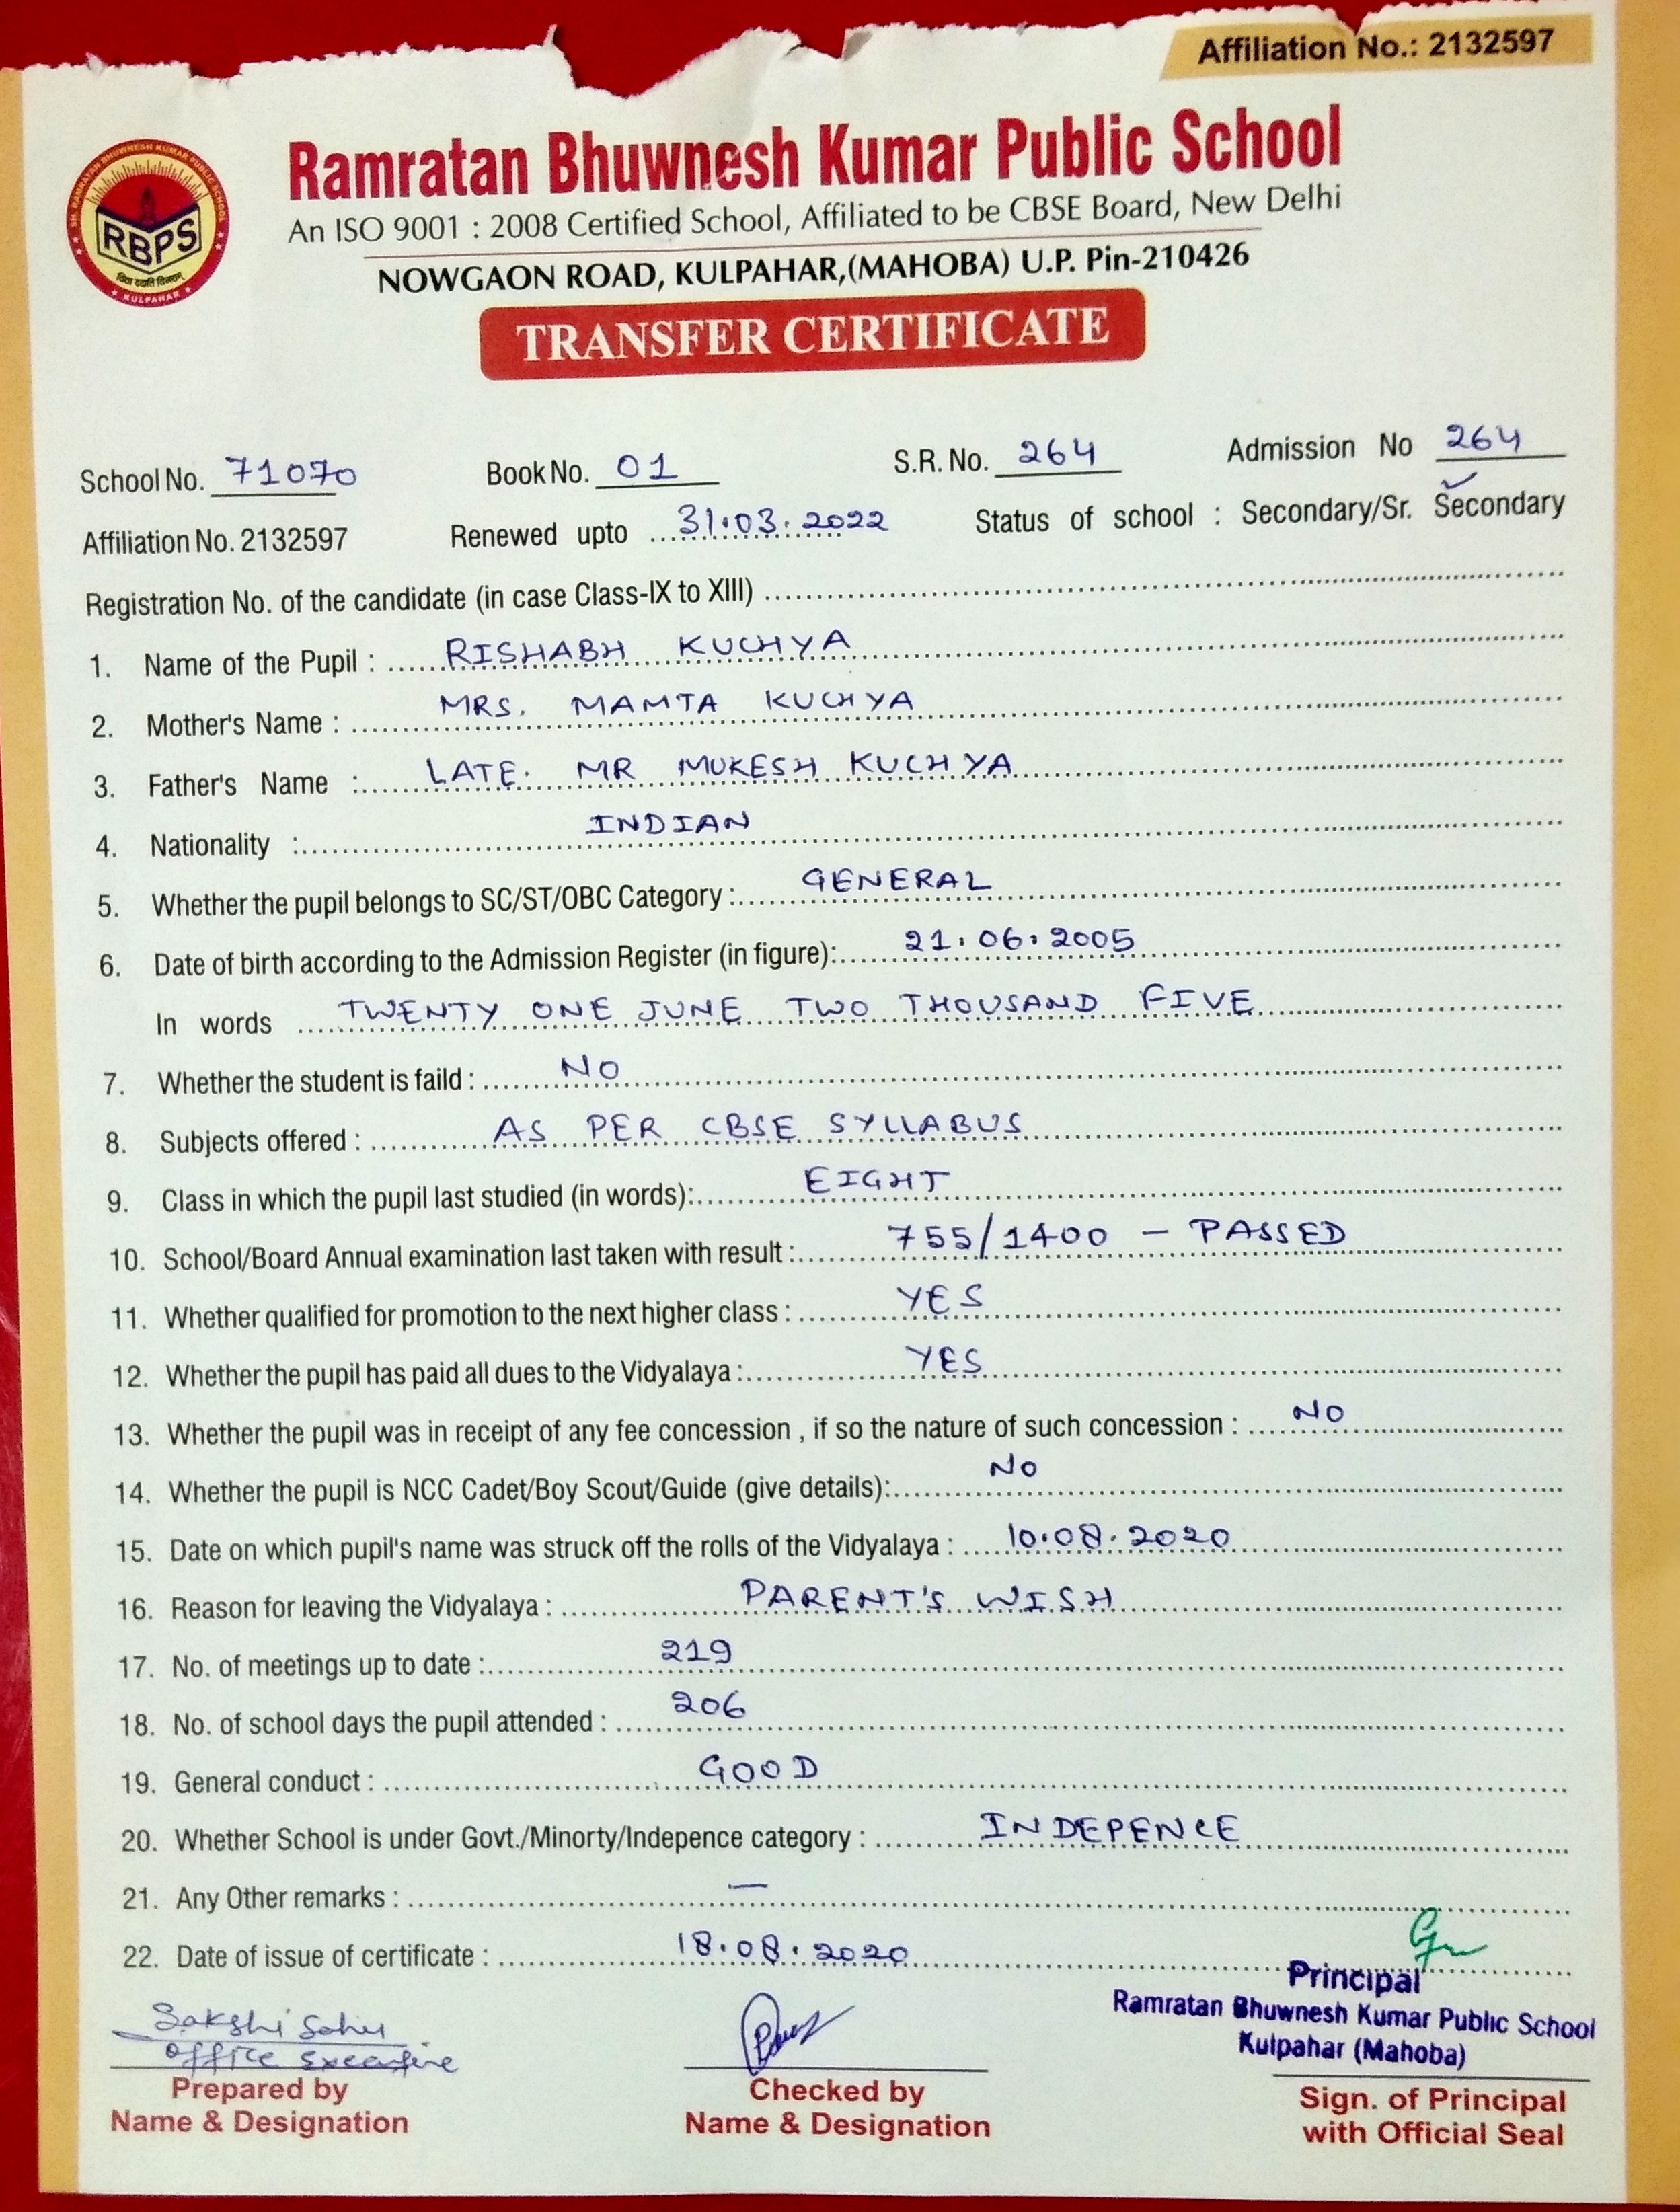 Affiliation No.: 2132597
SH. RAMRATAN BHUWNESH KUMAR PUBLIC SCHOOL
RBPS
विद्या ददाति विनयम्
KULPAHAR
Ramratan Bhuwnesh Kumar Public School
An ISO 9001 : 2008 Certified School, Affiliated to be CBSE Board, New Delhi
NOWGAON ROAD, KULPAHAR,(MAHOBA) U.P. Pin-210426
TRANSFER CERTIFICATE
School No. 71070 Book No. 01 S.R. No. 264 Admission No 264
Affiliation No. 2132597 Renewed upto 31.03.2022 Status of school : Secondary/Sr. Secondary
Registration No. of the candidate (in case Class-IX to XIII)
1. Name of the Pupil : RISHABH KUCHYA
2. Mother's Name : MRS. MAMTA KUCHYA
3. Father's Name : LATE. MR MUKESH KUCHYA
4. Nationality : INDIAN
5. Whether the pupil belongs to SC/ST/OBC Category : GENERAL
6. Date of birth according to the Admission Register (in figure): 21.06.2005
In words TWENTY ONE JUNE TWO THOUSAND FIVE
7. Whether the student is faild : NO
8. Subjects offered : AS PER CBSE SYLLABUS
9. Class in which the pupil last studied (in words): EIGHT
10. School/Board Annual examination last taken with result : 755/1400 - PASSED
11. Whether qualified for promotion to the next higher class : YES
12. Whether the pupil has paid all dues to the Vidyalaya : YES
13. Whether the pupil was in receipt of any fee concession , if so the nature of such concession : NO
14. Whether the pupil is NCC Cadet/Boy Scout/Guide (give details): NO
15. Date on which pupil's name was struck off the rolls of the Vidyalaya : 10.08.2020
16. Reason for leaving the Vidyalaya : PARENT'S WISH
17. No. of meetings up to date : 219
18. No. of school days the pupil attended : 206
19. General conduct : GOOD
20. Whether School is under Govt./Minorty/Indepence category : INDEPENCE
21. Any Other remarks : —
22. Date of issue of certificate : 18.08.2020
Principal
Ramratan Bhuwnesh Kumar Public School
Kulpahar (Mahoba)
Sakshi Sahu
Office Executive
Prepared by Checked by Sign. of Principal
Name & Designation Name & Designation with Official Seal